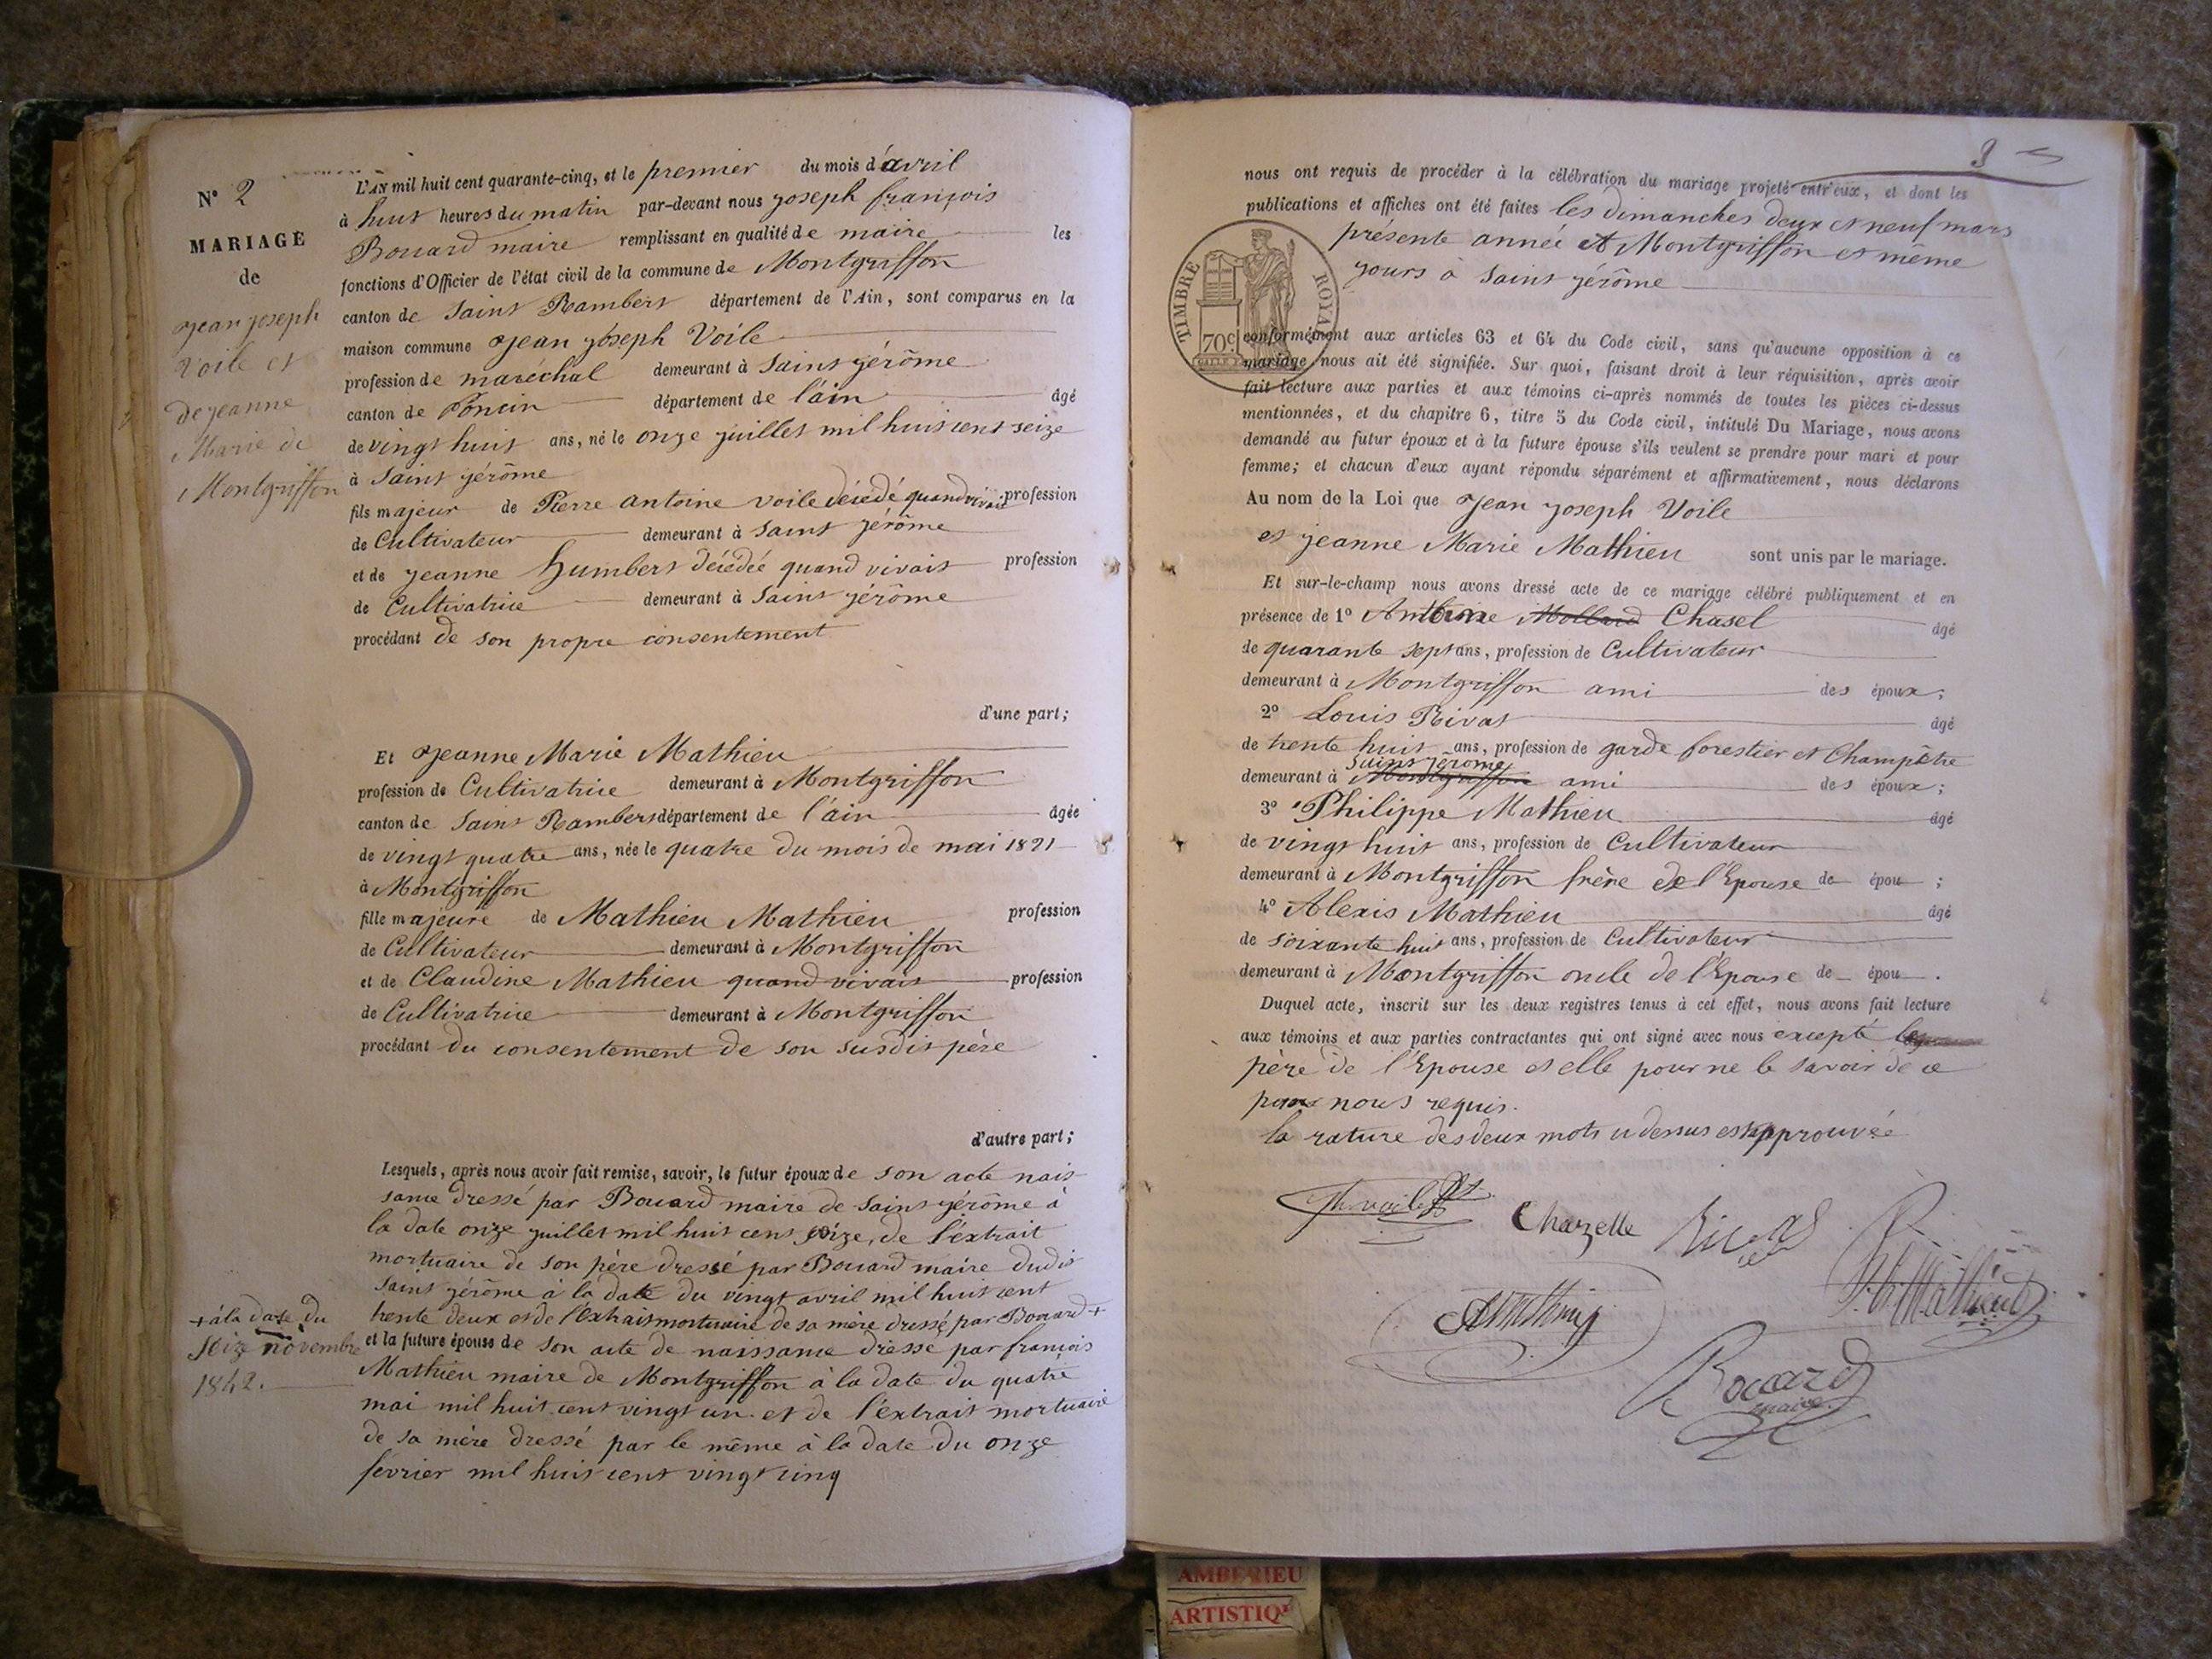 N° 2
MARIAGE
de
Jean joseph
Voile et
de jeanne
Marie de
Montgriffon
L'AN mil huit cent quarante-cinq, et le premier du mois d'avril
à huit heures du matin par-devant nous joseph françois
Bouard maire remplissant en qualité de maire les
fonctions d'Officier de l'état civil de la commune de Montgriffon
canton de Saint Rambert département de l'Ain, sont comparus en la
maison commune Jean joseph Voile
profession de maréchal demeurant à Saint jérôme
canton de Poncin département de l'ain âgé
de vingt huit ans, né le onze juillet mil huit cent seize
à Saint jérôme
fils majeur de Pierre antoine voile décédé quand vivait profession
de Cultivateur demeurant à Saint jérôme
et de jeanne humbert décédée quand vivait profession
de Cultivatrice demeurant à Saint jérôme
procédant de son propre consentement
d'une part;
Et Jeanne Marie Mathieu
profession de Cultivatrice demeurant à Montgriffon
canton de Saint Rambert département de l'ain âgée
de vingt quatre ans, née le quatre du mois de mai 1821
à Montgriffon
fille majeure de Mathieu Mathieu profession
de Cultivateur demeurant à Montgriffon
et de Claudine Mathieu quand vivait profession
de Cultivatrice demeurant à Montgriffon
procédant du consentement de son susdit père
d'autre part;
Lesquels, après nous avoir fait remise, savoir, le futur époux de son acte nais
sance dressé par Bouard maire de Saint jérôme à
la date onze juillet mil huit cent seize, de l'extrait
mortuaire de son père dressé par Bouard maire dudit
Saint jérôme à la date du vingt avril mil huit cent
trente deux et de l'extrait mortuaire de sa mère dressé par Bouard +
+ à la date du
seize novembre
1842.
et la future épouse de son acte de naissance dressé par françois
Mathieu maire de Montgriffon à la date du quatre
mai mil huit cent vingt un et de l'extrait mortuaire
de sa mère dressé par le même à la date du onze
février mil huit cent vingt cinq
3
nous ont requis de procéder à la célébration du mariage projeté entr'eux, et dont les
publications et affiches ont été faites les dimanches deux et neuf mars
présente année A Montgriffon et même
jours à Saint jérôme
TIMBRE ROYAL
70c
conformément aux articles 63 et 64 du Code civil, sans qu'aucune opposition à ce
mariage nous ait été signifiée. Sur quoi, faisant droit à leur réquisition, après avoir
fait lecture aux parties et aux témoins ci-après nommés de toutes les pièces ci-dessus
mentionnées, et du chapitre 6, titre 5 du Code civil, intitulé Du Mariage, nous avons
demandé au futur époux et à la future épouse s'ils veulent se prendre pour mari et pour
femme; et chacun d'eux ayant répondu séparément et affirmativement, nous déclarons
Au nom de la Loi que Jean joseph Voile
et jeanne Marie Mathieu sont unis par le mariage.
Et sur-le-champ nous avons dressé acte de ce mariage célébré publiquement et en
présence de 1° Antoine Chasel âgé
de quarante sept ans, profession de Cultivateur
demeurant à Montgriffon ami des époux;
2° Louis Rivat âgé
de trente huit ans, profession de garde forestier et Champêtre
Saint jérome
demeurant à Montgriffon ami des époux;
3° Philippe Mathieu âgé
de vingt huit ans, profession de Cultivateur
demeurant à Montgriffon frère de l'Epouse de épou ;
4° Alexis Mathieu âgé
de soixante huit ans, profession de Cultivateur
demeurant à Montgriffon oncle de l'Epouse de épou .
Duquel acte, inscrit sur les deux registres tenus à cet effet, nous avons fait lecture
aux témoins et aux parties contractantes qui ont signé avec nous excepté le
père de l'Epouse et elle pour ne le savoir de ce
par nous requis.
la rature des deux mots ci dessus est approuvée
Chazelle
Rivat
Ph Mathieu
Bouard
maire
AMBERIEU
ARTISTIQUE